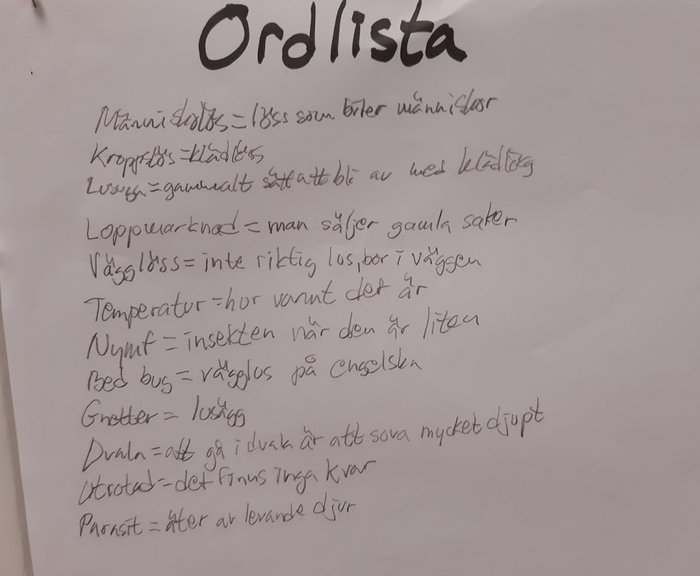 Ordlista
Människolös = löss som biter människor
Kroppslös = klädlös
= gammalt sätt att bli av med klädlös
Loppmarknad = man säljer gamla saker
Vägglöss = inte riktig lus, bor i väggen
Temperatur = hur varmt det är
Nymf = insekten när den är liten
Bed bug = vägglus på engelska
Gnetter = lusägg
Dvala = att gå i dvala är att sova mycket djupt
Utrotad = det finns inga kvar
Parasit = äter av levande djur